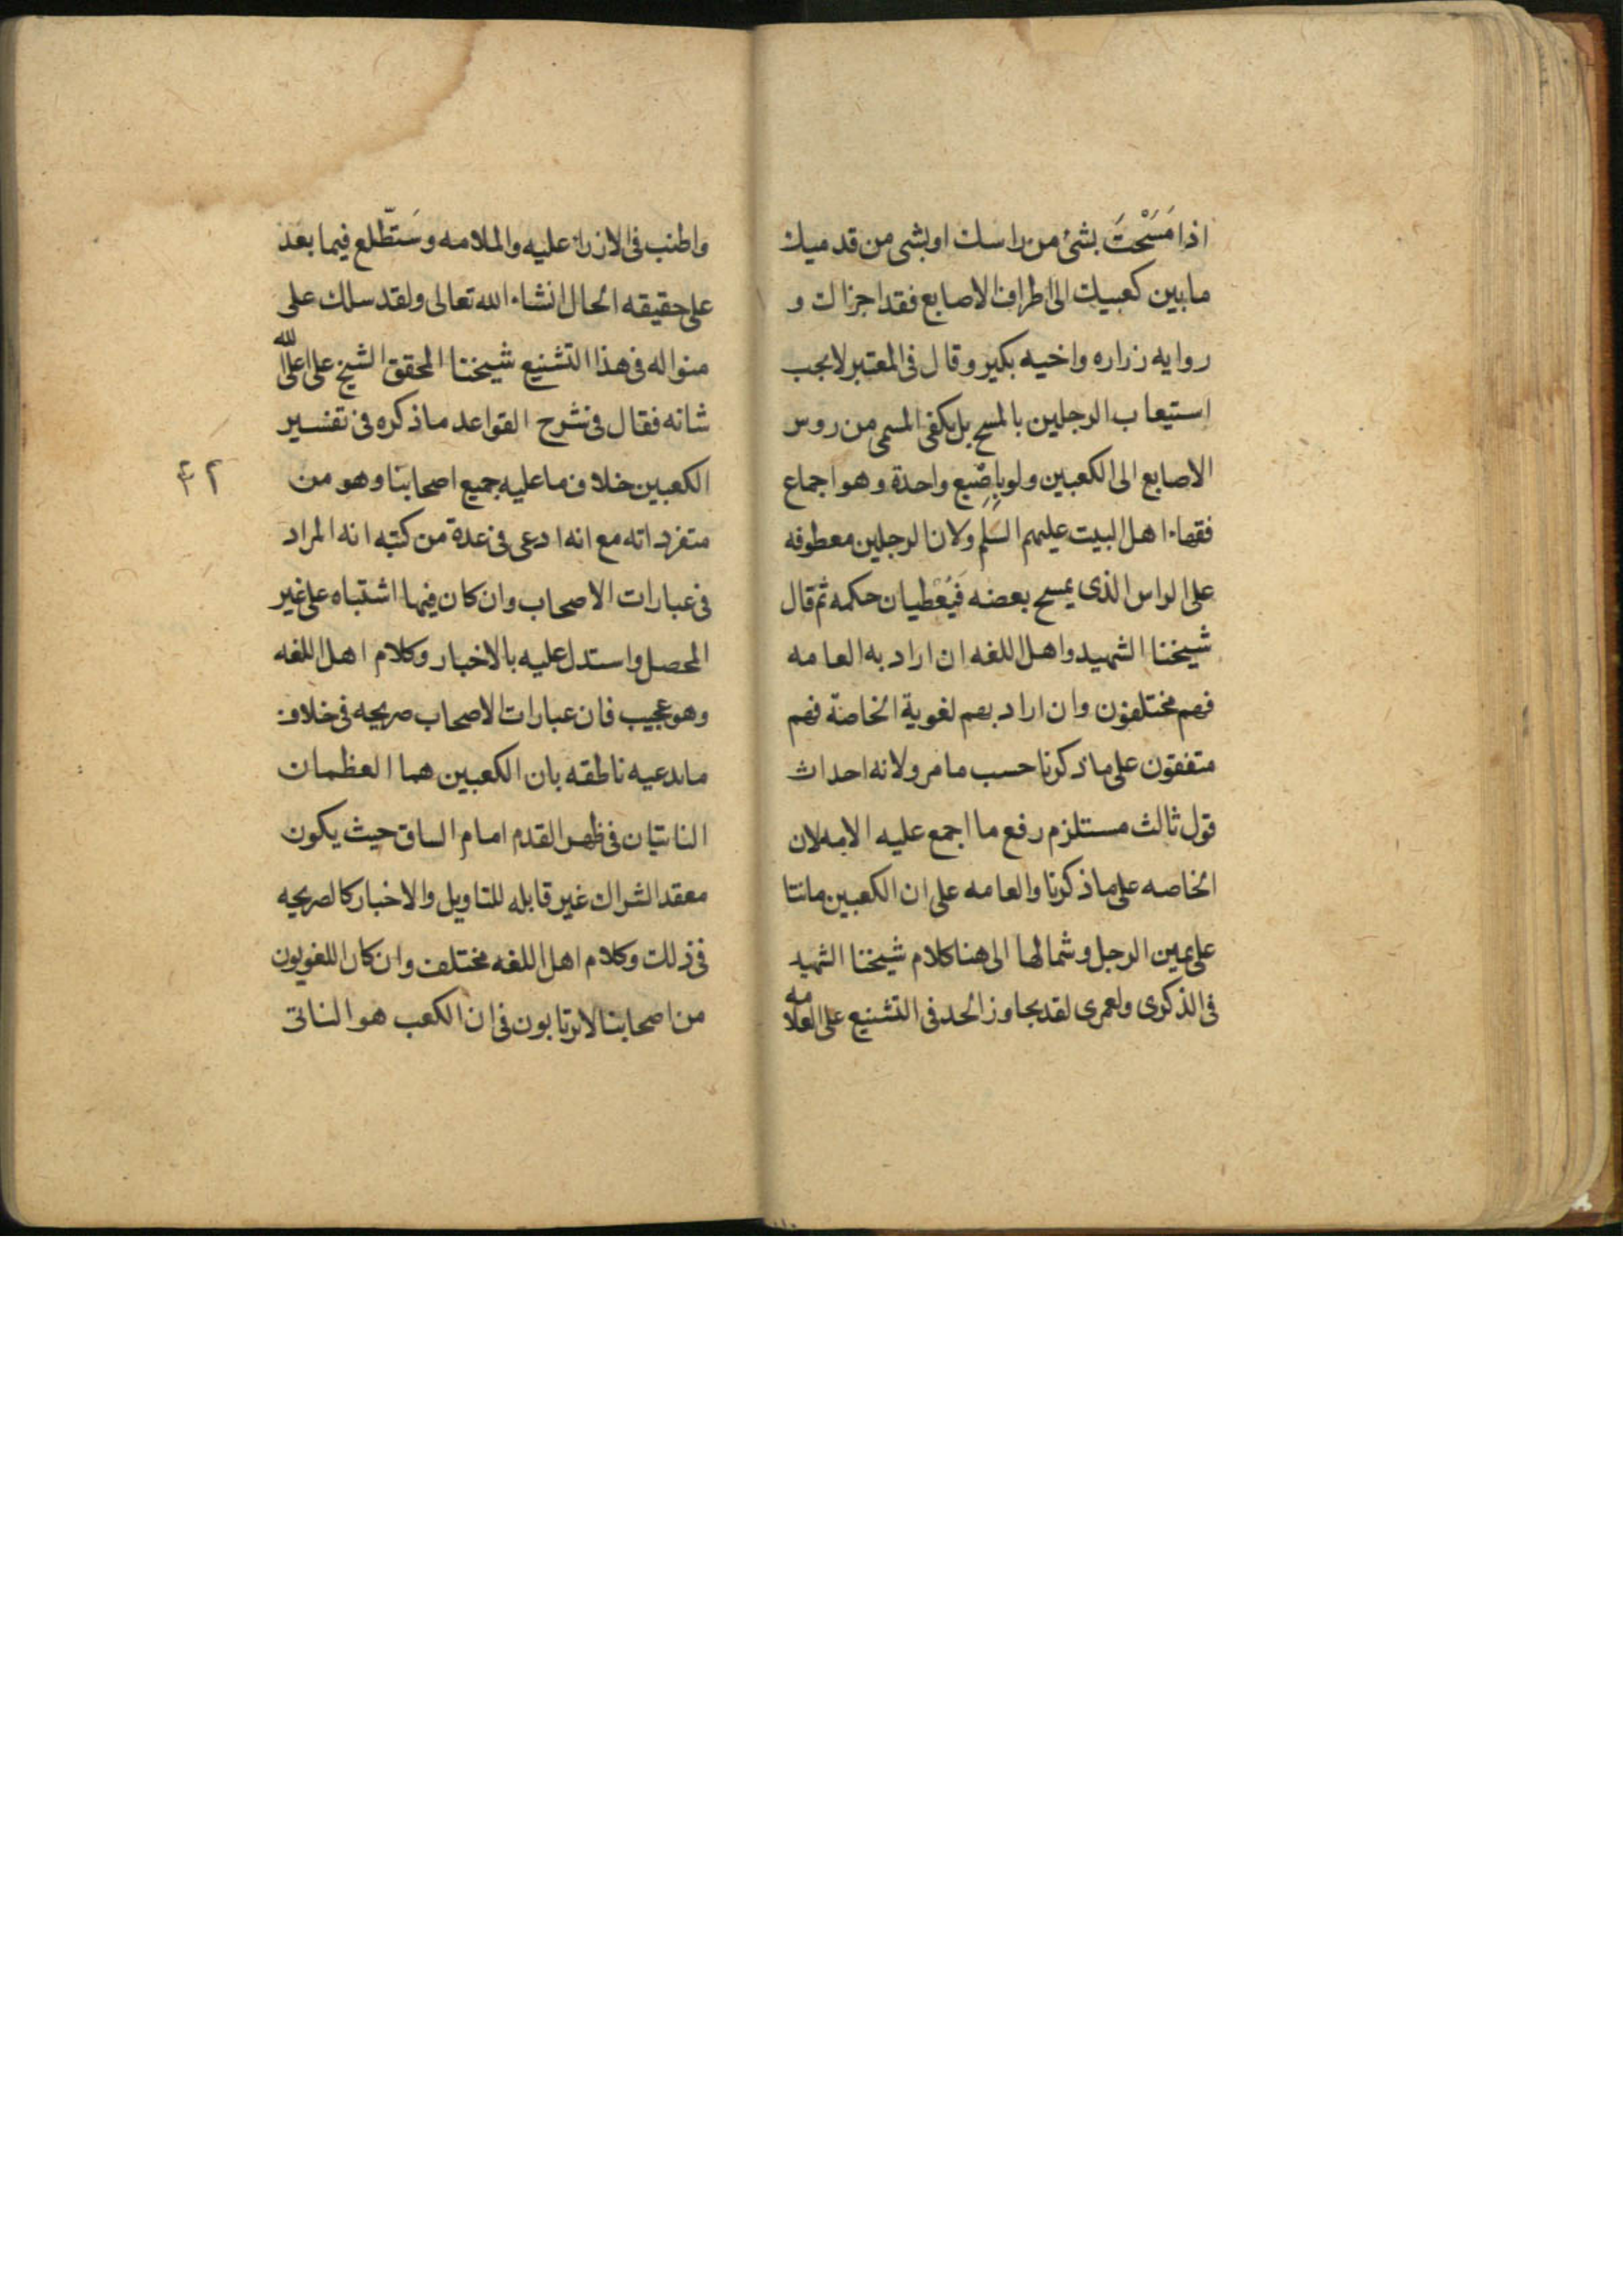 اذا مَسَحْتَ بشئ من راسك او بشى من قدميك
مابين كعبيك الى اطراف الاصابع فقد اجزاك و
روايه زراره واخيه بكير وقال فى المعتبر لا يجب
استيعاب الرجلين بالمسح بل يكفى المسمى من روس
الاصابع الى الكعبين ولو باصبع واحدة وهو اجماع
فقهاء اهل البيت عليهم السلم ولان الرجلين معطوفه
على الراس الذى يمسح بعضه فيُعْطيان حكمه ثم قال
شيخنا الشهيد واهل اللغه ان اراد به العامه
فهم مختلفون وان اراد بهم لغوية الخاصة فهم
متفقون على ماذكرنا حسب مامر ولانه احداث
قول ثالث مستلزم رفع ما اجمع عليه الامه لان
الخاصه على ماذكرنا والعامه على ان الكعبين مانتا
على يمين الرجل وشمالها الى هنا كلام شيخنا الشهيد
فى الذكرى ولعمرى لقد تجاوز الحد فى التشنيع على العلامه
واطنب فى الازراء عليه والملامه وسَتطّلع فيما بعد
على حقيقه الحال انشاء الله تعالى ولقد سلك على
منواله فى هذا التشنيع شيخنا المحقق الشيخ على اعلى الله
شانه فقال فى شرح القواعد ماذكره فى تفسير
الكعبين خلاف ماعليه جميع اصحابنا وهو من
متفرداته مع انه ادعى فى عدة من كتبه انه المراد
فى عبارات الاصحاب وان كان فيها اشتباه على غير
المحصل واستدل عليه بالاخبار وكلام اهل اللغه
وهو عجيب فان عبارات الاصحاب صريحه فى خلاف
مايدعيه ناطقه بان الكعبين هما العظمان
الناتيان فى ظهر القدم امام الساق حيث يكون
معقد الشراك غير قابله للتاويل والاخبار كالصريحه
فى ذلك وكلام اهل اللغه مختلف وان كان اللغويون
من اصحابنا لايرتابون فى ان الكعب هو الناتى